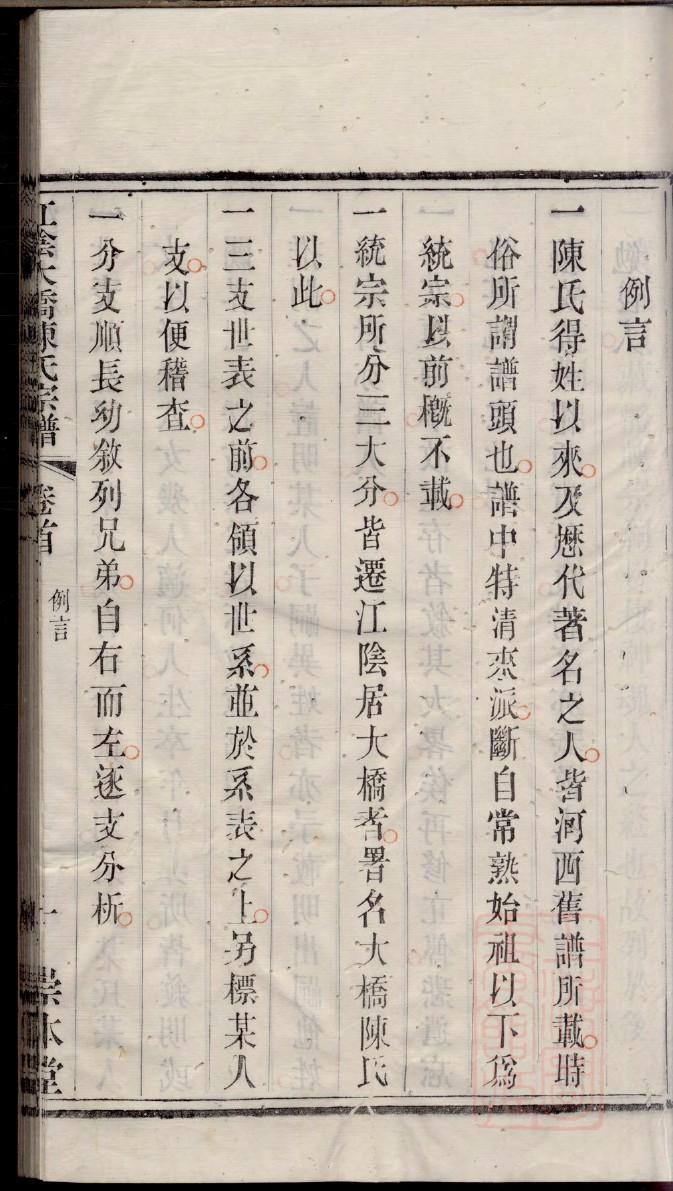 例言
一陳氏得姓以來及歷代著名之人皆河西舊譜所載時
俗所謂譜頭也譜中特清來派斷自常熟始祖以下爲
統宗以前槪不載
一統宗所分三大分皆遷江陰居大橋者署名大橋陳氏
以此
一三支世表之前各領以世系並於系表之上另標某人
支以便稽查
一分支順長幼敘列兄弟自右而左逐支分析
江陰大橋陳氏宗譜
卷首
例言
一
崇本堂